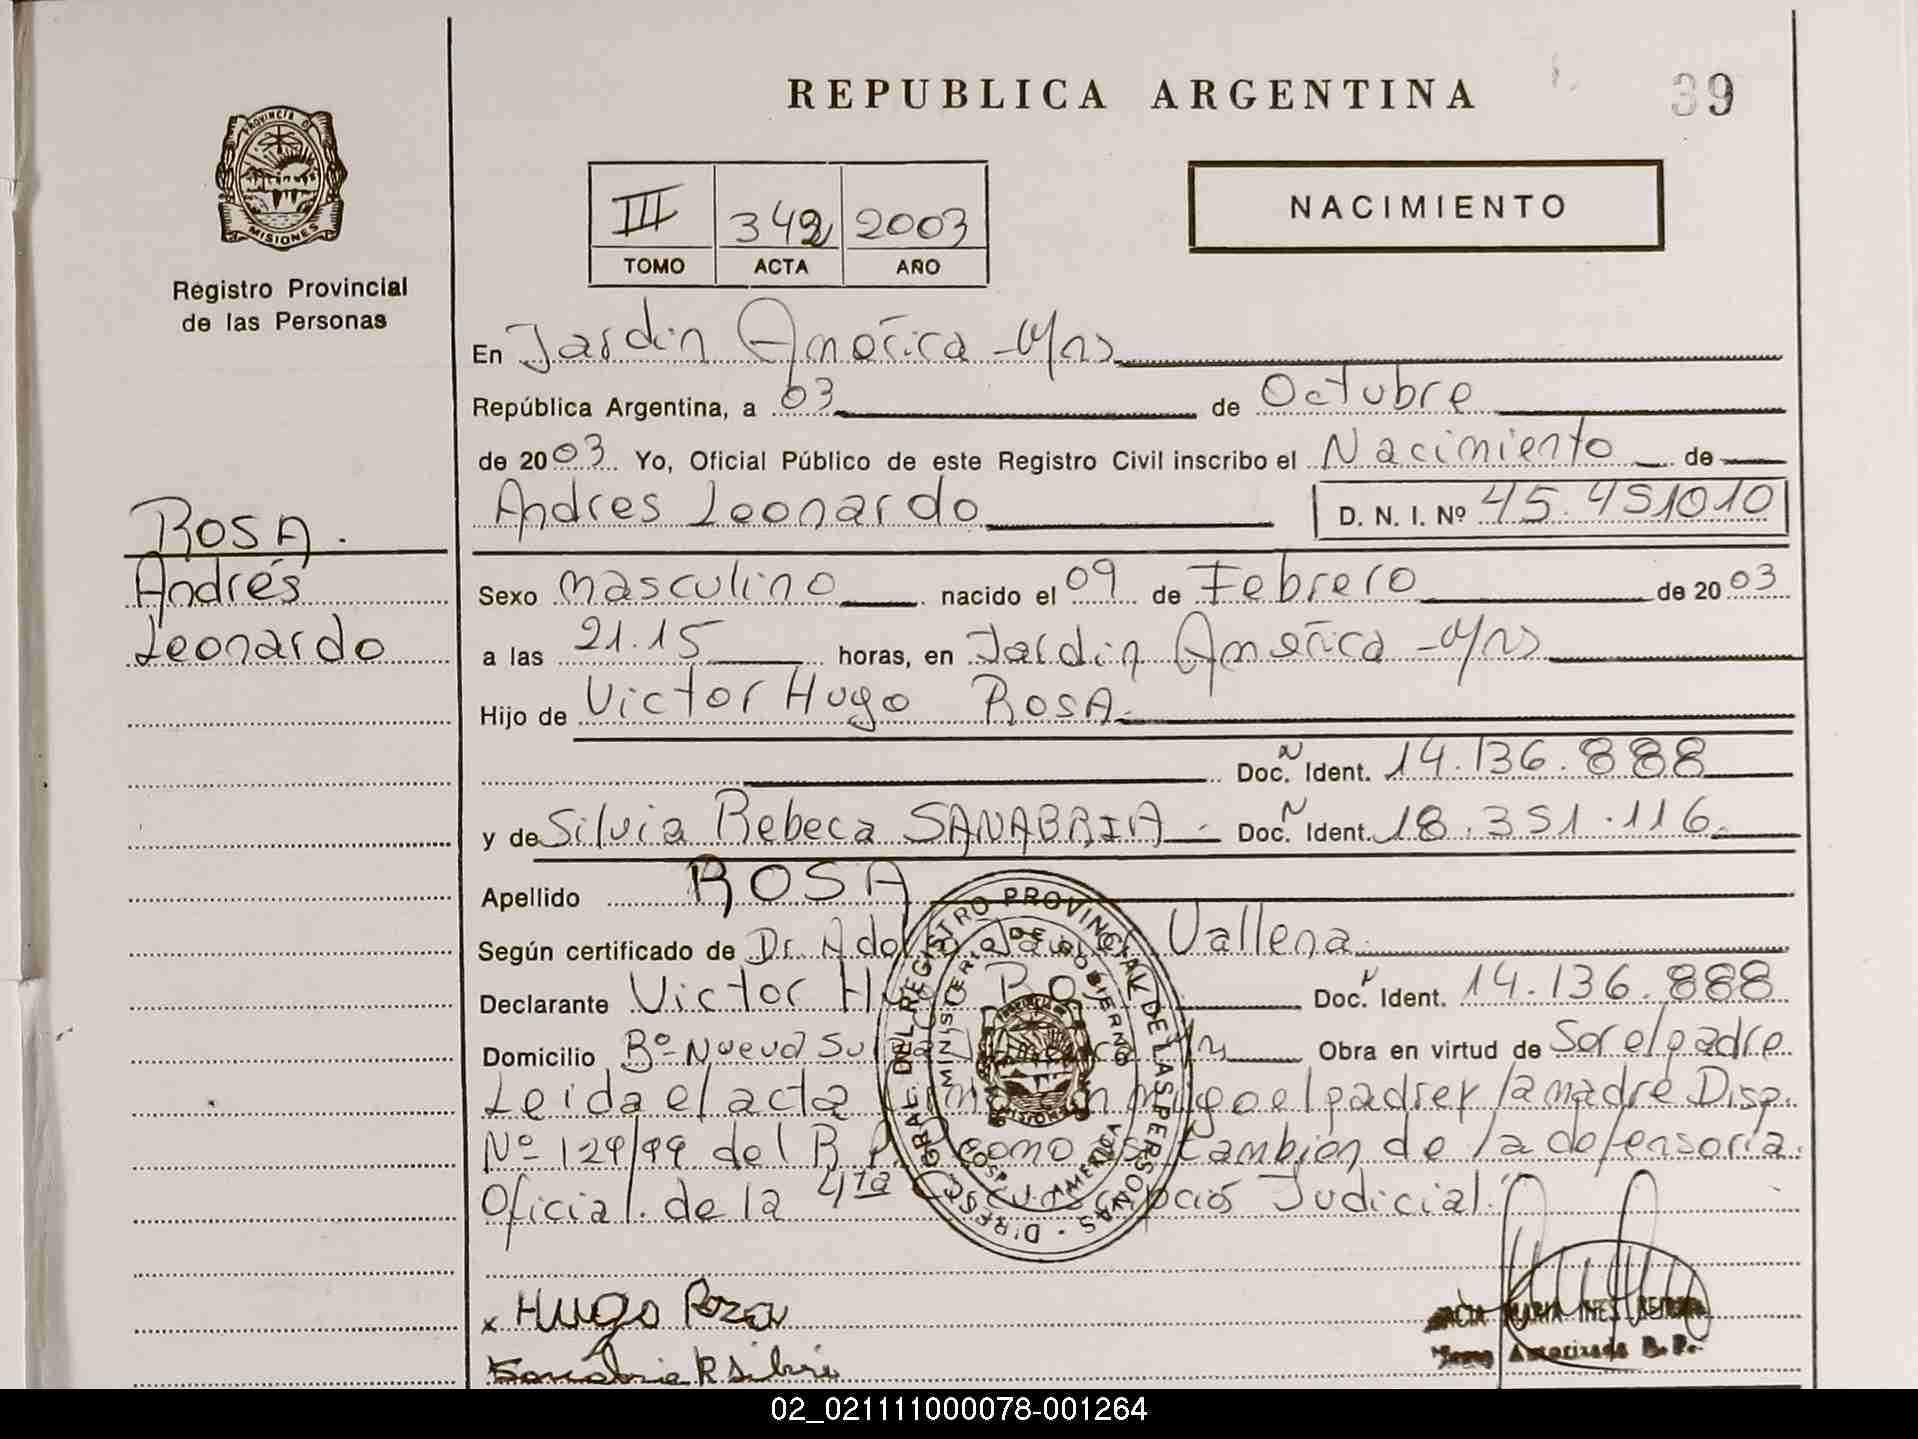 REPUBLICA ARGENTINA
39
PROVINCIA DE
MISIONES
Registro Provincial
de las Personas
NACIMIENTO
III 342 2003
TOMO ACTA AÑO
En Jardin América - Mns
República Argentina, a 03 de Octubre
de 2003. Yo, Oficial Público de este Registro Civil inscribo el Nacimiento de
Andres Leonardo D. N. I. Nº 45.451010
ROSA.
Andrés
Leonardo
Sexo masculino nacido el 09 de Febrero de 2003
a las 21.15 horas, en Jardin América - Mns
Hijo de Victor Hugo ROSA
Doc. Ident. 14.136.888
y de Silvia Rebeca SANABRIA - Doc. Ident. 18.351.116
Apellido ROSA
Según certificado de Dr. Vallena
Declarante Victor Doc. Ident. 14.136.888
Domicilio Bº Nueva Obra en virtud de Ser el padre
Leida el acta el padre y la madre Disp.
Nº 129/99 del R. P. como tambien de la defensoria
Oficial de la 4ta Judicial.
DIREC. GRAL. DEL REGISTRO PROVINCIAL DE LAS PERSONAS
MINISTERIO DE GOBIERNO
HOSP. J. AMERICA
MISIONES
x Hugo Roza
Sanabria R Silvia
MARIA INES
Autorizada R. P.
02_021111000078-001264